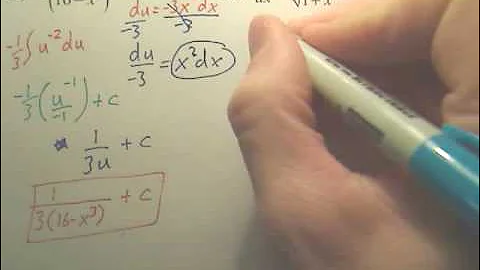 du = -3x dx
-3 -3
-1/3 ∫ u^-2 du
du/-3 = x^2 dx
-1/3 (u^-1/-1) + c
1/3u + c
1/3(16-x^3) + c